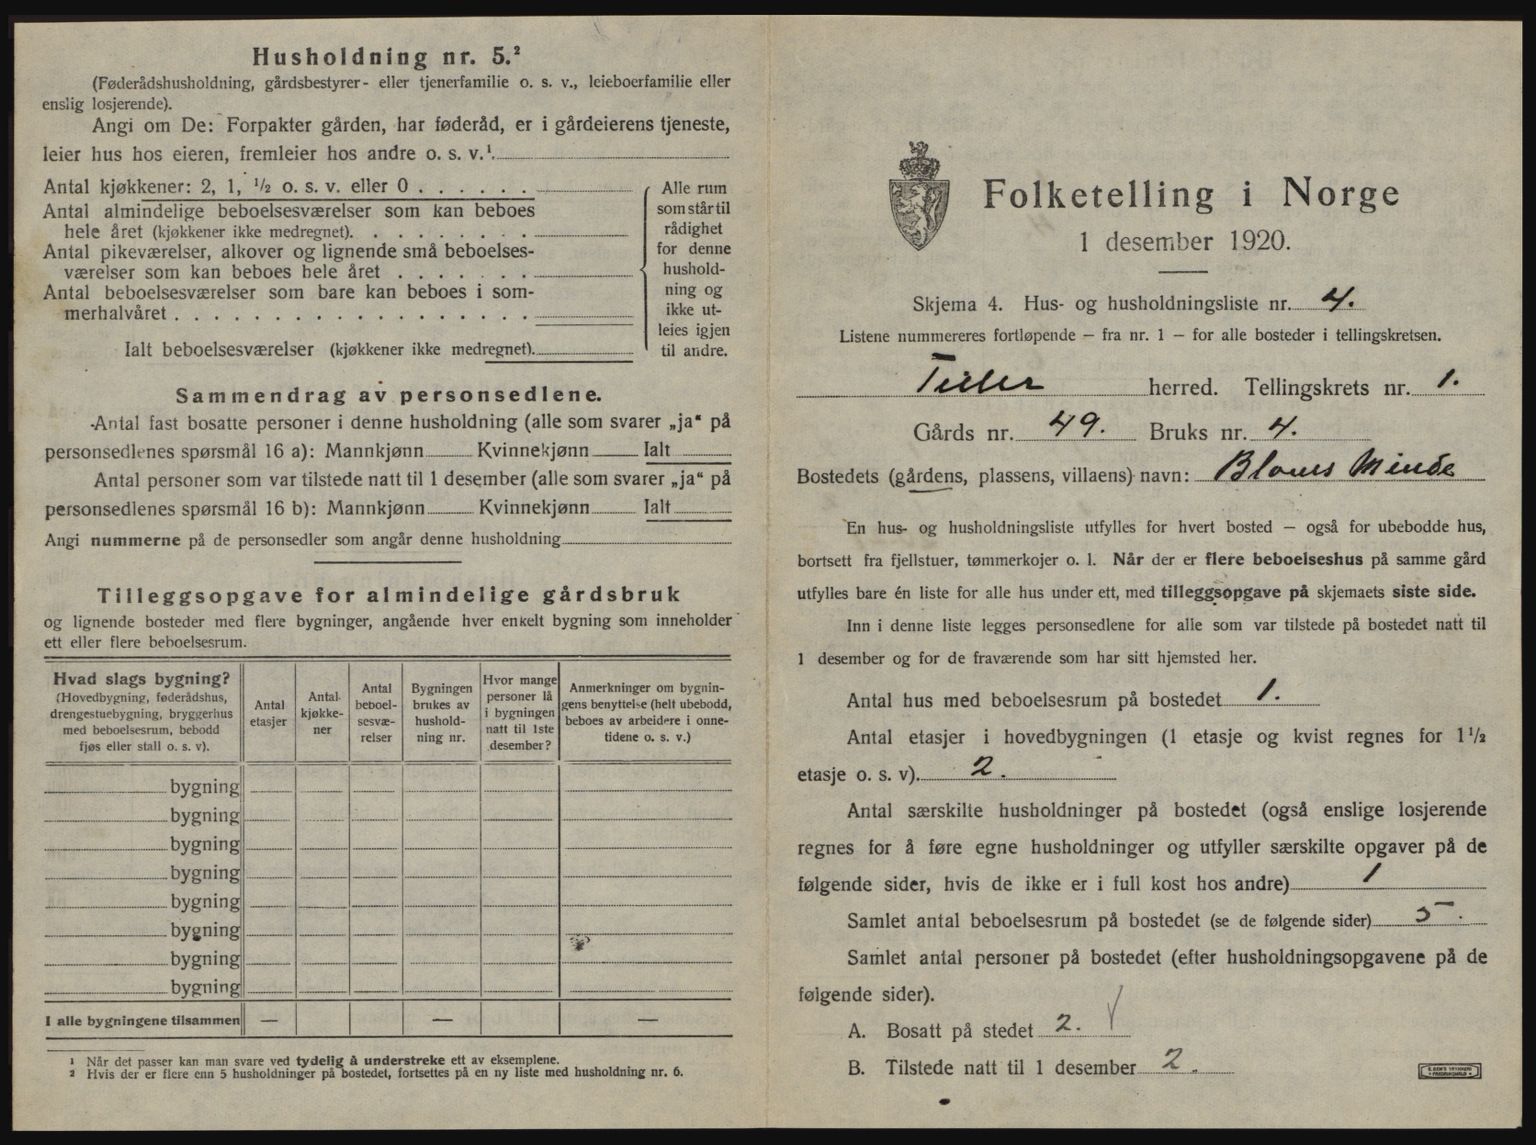 Husholdning nr. 5.²
(Føderådshusholdning, gårdsbestyrer- eller tjenerfamilie o. s. v., leieboerfamilie eller
enslig losjerende).
Angi om De: Forpakter gården, har føderåd, er i gårdeierens tjeneste,
leier hus hos eieren, fremleier hos andre o. s. v.¹
Antal kjøkkener: 2, 1, ½ o. s. v. eller 0
Antal almindelige beboelsesværelser som kan beboes
hele året (kjøkkener ikke medregnet).
Antal pikeværelser, alkover og lignende små beboelses-
værelser som kan beboes hele året
Antal beboelsesværelser som bare kan beboes i som-
merhalvåret
Ialt beboelsesværelser (kjøkkener ikke medregnet).
Alle rum
som står til
rådighet
for denne
hushold-
ning og
ikke ut-
leies igjen
til andre.
Sammendrag av personsedlene.
Antal fast bosatte personer i denne husholdning (alle som svarer „ja“ på
personsedlenes spørsmål 16 a): Mannkjønn Kvinnekjønn Ialt
Antal personer som var tilstede natt til 1 desember (alle som svarer „ja“ på
personsedlenes spørsmål 16 b): Mannkjønn Kvinnekjønn Ialt
Angi nummerne på de personsedler som angår denne husholdning
Tilleggsopgave for almindelige gårdsbruk
og lignende bosteder med flere bygninger, angående hver enkelt bygning som inneholder
ett eller flere beboelsesrum.
Hvad slags bygning?
(Hovedbygning, føderådshus,
drengestuebygning, bryggerhus
med beboelsesrum, bebodd
fjøs eller stall o. s. v).
Antal
etasjer
Antal
kjøkke-
ner
Antal
beboel-
sesvæ-
relser
Bygningen
brukes av
hushold-
ning nr.
Hvor mange
personer lå
i bygningen
natt til 1ste
desember?
Anmerkninger om bygnin-
gens benyttelse (helt ubebodd,
beboes av arbeidere i onne-
tidene o. s. v.)
bygning
bygning
bygning
bygning
bygning
bygning
bygning
bygning
I alle bygningene tilsammen — — —
¹ Når det passer kan man svare ved tydelig å understreke ett av eksemplene.
² Hvis der er flere enn 5 husholdninger på bostedet, fortsettes på en ny liste med husholdning nr. 6.
Folketelling i Norge
1 desember 1920.
Skjema 4. Hus- og husholdningsliste nr. 4.
Listene nummereres fortløpende – fra nr. 1 – for alle bosteder i tellingskretsen.
Tiller herred. Tellingskrets nr. 1.
Gårds nr. 49. Bruks nr. 4.
Bostedets (gårdens, plassens, villaens) navn: Bloms Minde
En hus- og husholdningsliste utfylles for hvert bosted – også for ubebodde hus,
bortsett fra fjellstuer, tømmerkojer o. l. Når der er flere beboelseshus på samme gård
utfylles bare én liste for alle hus under ett, med tilleggsopgave på skjemaets siste side.
Inn i denne liste legges personsedlene for alle som var tilstede på bostedet natt til
1 desember og for de fraværende som har sitt hjemsted her.
Antal hus med beboelsesrum på bostedet 1.
Antal etasjer i hovedbygningen (1 etasje og kvist regnes for 1½
etasje o. s. v). 2.
Antal særskilte husholdninger på bostedet (også enslige losjerende
regnes for å føre egne husholdninger og utfyller særskilte opgaver på de
følgende sider, hvis de ikke er i full kost hos andre) 1
Samlet antal beboelsesrum på bostedet (se de følgende sider) 5.
Samlet antal personer på bostedet (efter husholdningsopgavene på de
følgende sider).
A. Bosatt på stedet 2.
B. Tilstede natt til 1 desember 2.